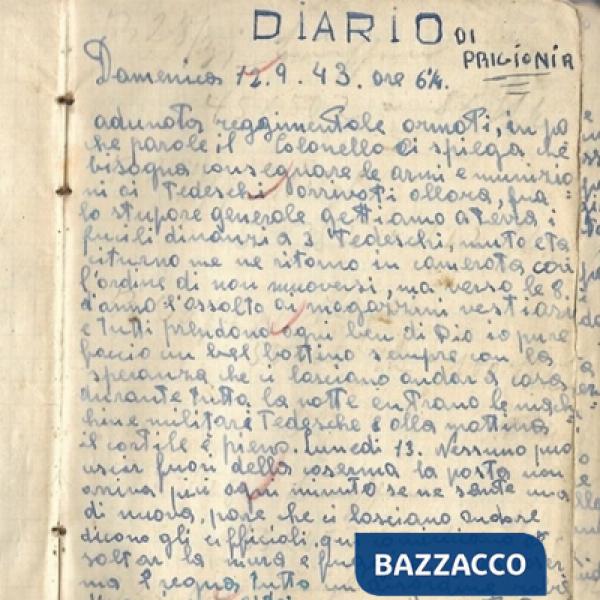 DIARIO DI
PRIGIONIA
Domenica 12.9.43. ore 6¼.
adunata reggimentale armati, in po
che parole il Colonello ci spiega che
bisogna consegnare le armi e munizio
ni ai Tedeschi arrivati allora, fra
lo stupore generale gettiamo a terra i
fucili dinanzi a 3 Tedeschi, muto e ta
citurno me ne ritorno in camerata con
l'ordine di non muoversi, ma verso le 8
danno l'assalto ai magazzini vestiari
e tutti prendono ogni ben di Dio io pure
faccio un bel bottino sempre con la
speranza che ci lasciano andar a casa
durante tutta la notte entrano le mac
chine militari Tedesche e alla mattina
il cortile è pieno. Lunedi 13. Nessuno può
uscir fuori della caserma la posta non
arriva più ogni minuto se ne sente una
di nuova, pare che ci lasciano andare
dicono gli ufficiali
saltar la mura e
ma tutto un
BAZZACCO